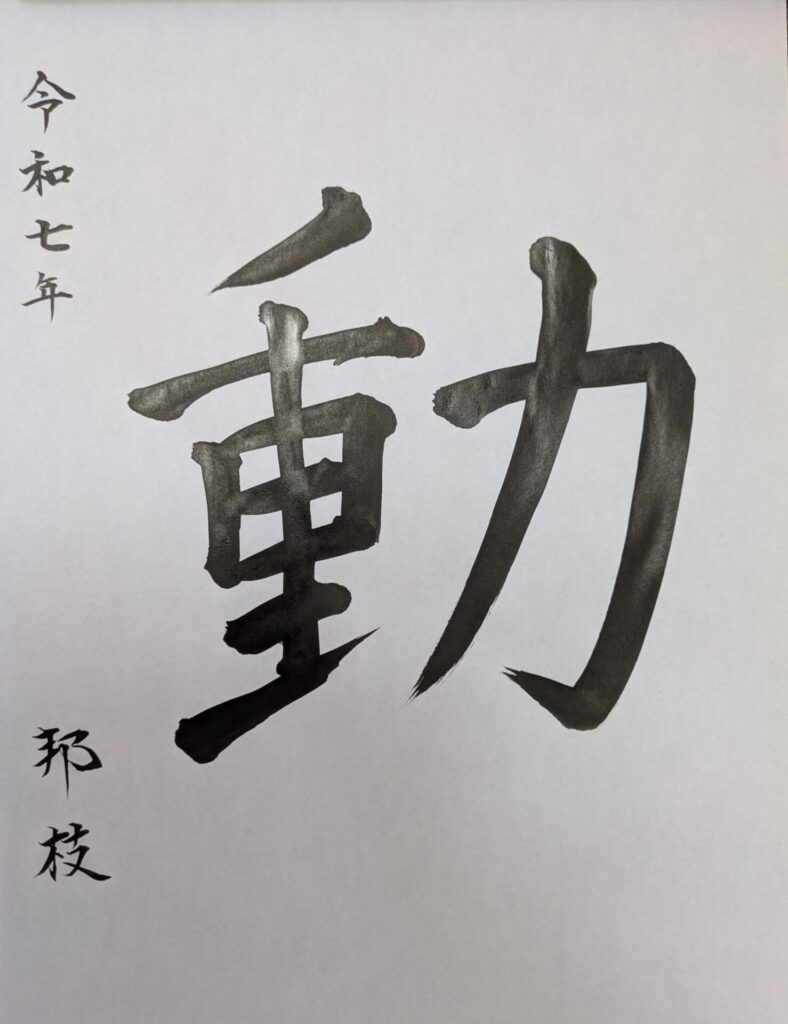 動
令和七年
邦枝